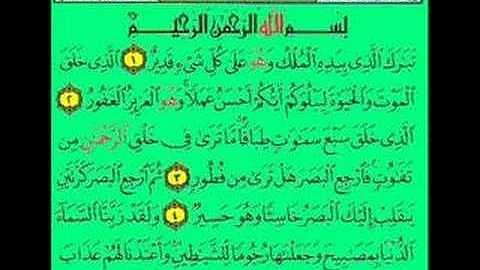 بِسْمِ ٱللَّهِ ٱلرَّحْمَٰنِ ٱلرَّحِيمِ
تَبَٰرَكَ ٱلَّذِى بِيَدِهِ ٱلْمُلْكُ وَهُوَ عَلَىٰ كُلِّ شَىْءٍ قَدِيرٌ ١ ٱلَّذِى خَلَقَ
ٱلْمَوْتَ وَٱلْحَيَوٰةَ لِيَبْلُوَكُمْ أَيُّكُمْ أَحْسَنُ عَمَلًا ۚ وَهُوَ ٱلْعَزِيزُ ٱلْغَفُورُ ٢
ٱلَّذِى خَلَقَ سَبْعَ سَمَٰوَٰتٍ طِبَاقًا ۖ مَّا تَرَىٰ فِى خَلْقِ ٱلرَّحْمَٰنِ مِن
تَفَٰوُتٍ ۖ فَٱرْجِعِ ٱلْبَصَرَ هَلْ تَرَىٰ مِن فُطُورٍ ٣ ثُمَّ ٱرْجِعِ ٱلْبَصَرَ كَرَّتَيْنِ
يَنقَلِبْ إِلَيْكَ ٱلْبَصَرُ خَاسِئًا وَهُوَ حَسِيرٌ ٤ وَلَقَدْ زَيَّنَّا ٱلسَّمَآءَ
ٱلدُّنْيَا بِمَصَٰبِيحَ وَجَعَلْنَٰهَا رُجُومًا لِّلشَّيَٰطِينِ ۖ وَأَعْتَدْنَا لَهُمْ عَذَابَ